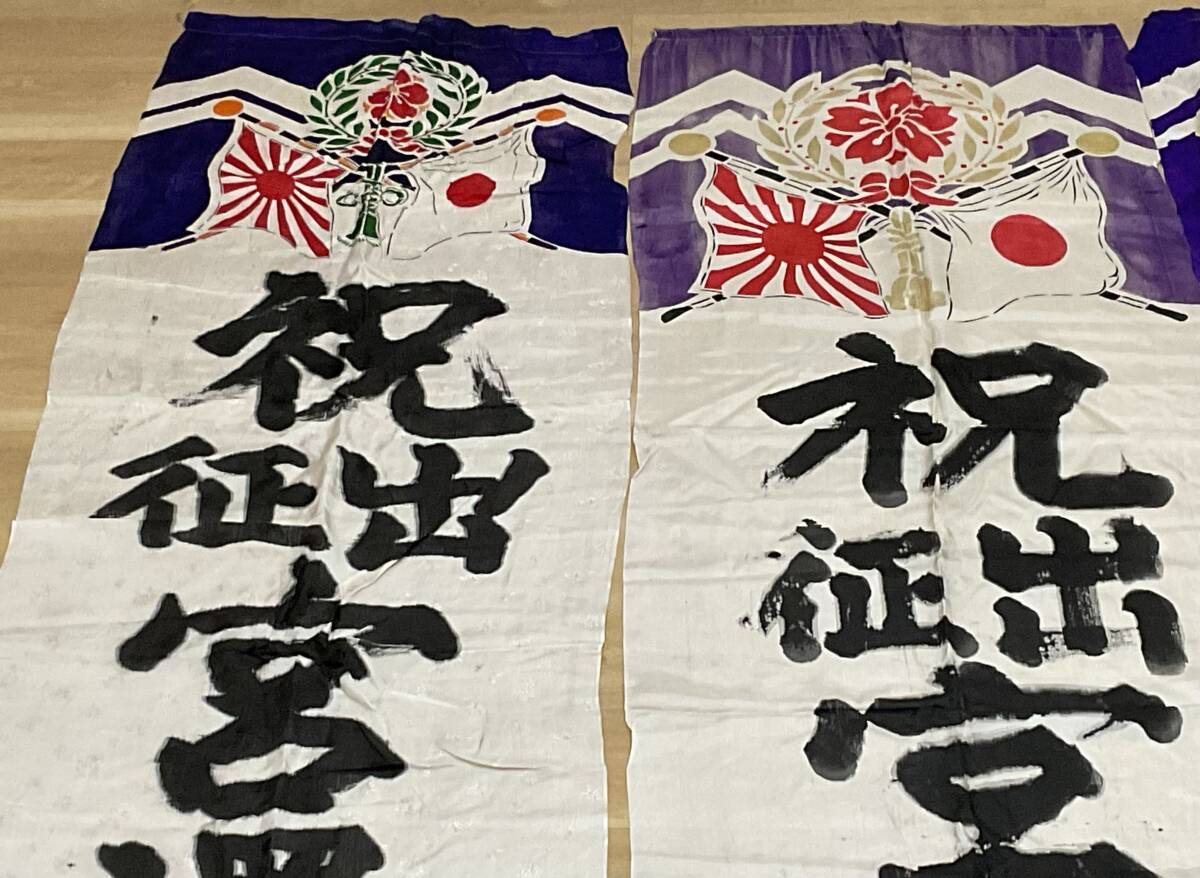 祝出征宮
祝出征宮